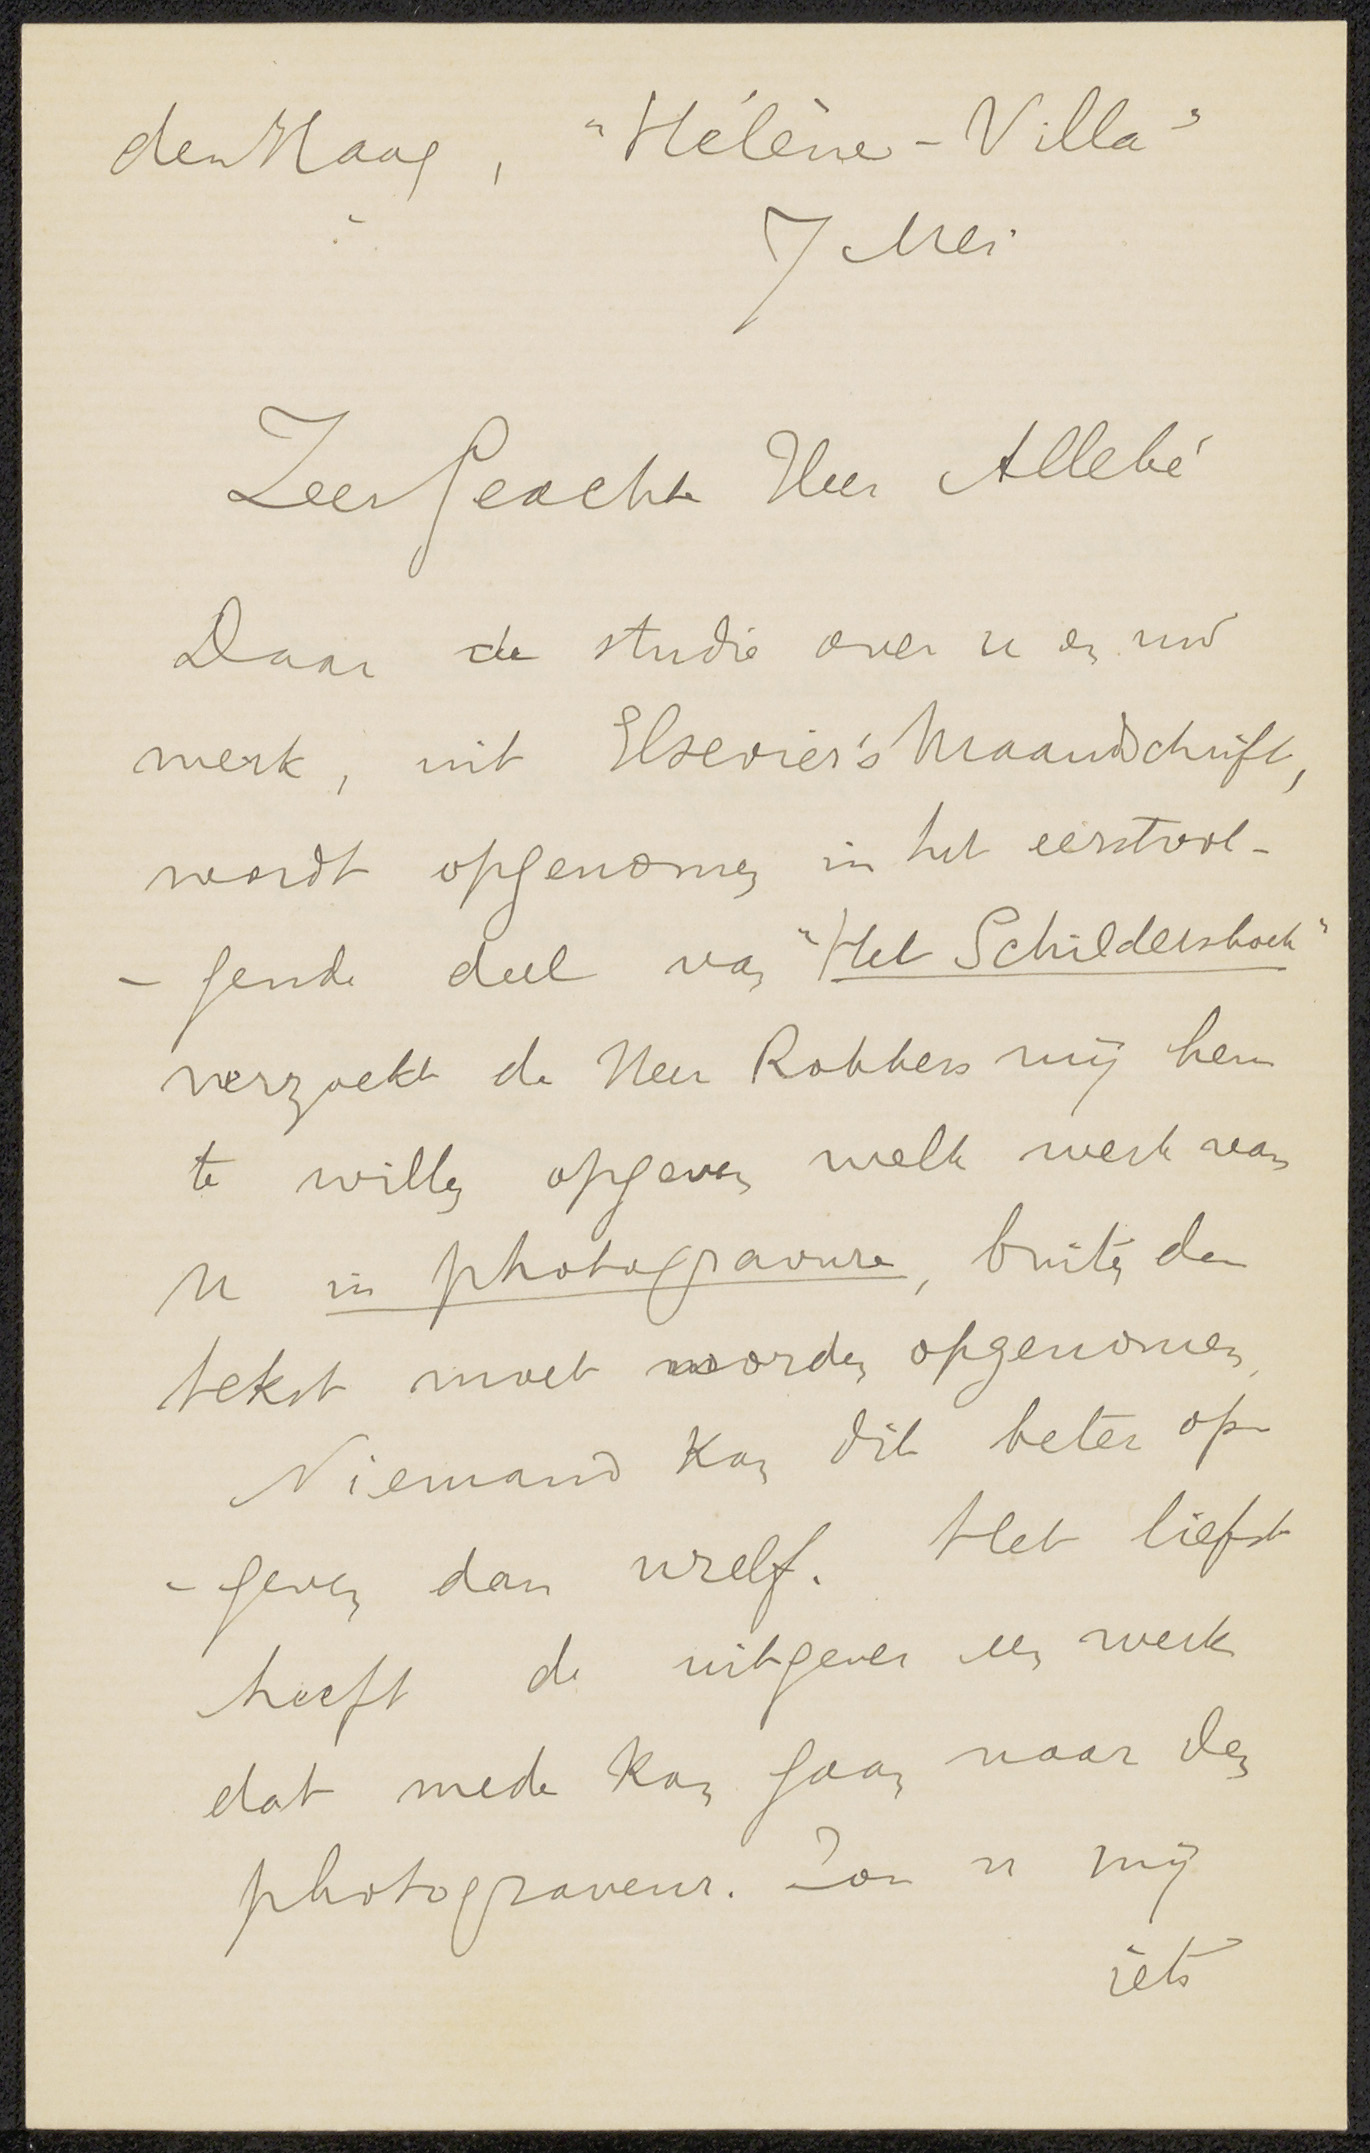 den Haag, "Hélène-Villa"
7 Mei
Zeer Geachte Heer Allebé
Daar de studie over u en uw
werk, uit Elsevier's Maandschrift,
wordt opgenomen in het eerstvol-
-gende deel van "Het Schildersboek"
verzoekt de Heer Robbers mij hem
te willen opgeven welk werk van
u in photogravure, buiten den
tekst moet worden opgenomen.
Niemand kan dit beter op-
-geven dan uzelf. Het liefst
heeft de uitgever een werk
dat mede kan gaan naar den
photograveur. Zou u mij
iets